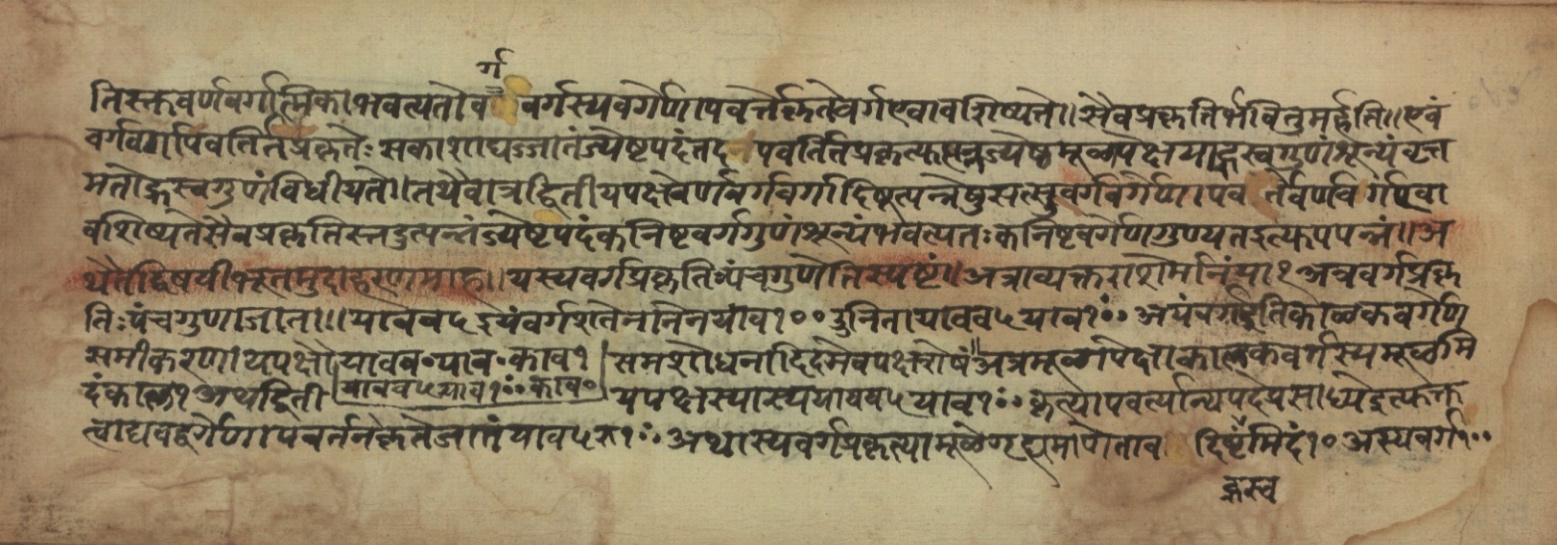 र्ग
तिस्कवर्णवर्गात्मिकाभवत्यतोव वर्गस्यवर्गेणापवर्त्तेकृतेवर्गएवावशिष्यते॥सैवप्रकृतिर्भवितुमर्हति॥एवं
वर्गवर्गापवर्तितप्रकृतेः सकाशाद्यज्जातंज्येष्टपदंतद पवर्तितप्रकृत्युत्पन्नज्येष्ठमूळापेक्षयाह्रस्वगुणंशून्यंवृत्त
मतोह्रस्वगुणंविधीयते॥तथैवात्रद्वितीयपक्षेवर्णवर्गवर्गादिषूत्पन्नेषुसत्सुवर्गवर्गेणापव र्तेवर्णवर्गएवा
वशिष्यतेसैवप्रकृतिस्तदुत्पन्नंज्येष्टपदंकनिष्टवर्गगुणंशून्यंभवत्यतःकनिष्टवर्गेणगुण्यतइत्युपपन्नं॥अ
थैतद्विषयीभूतमुदाहरणमाह॥यस्यवर्गप्रकृतिश्पंचगुणेतिस्पष्टं॥अत्राव्यक्तराशेर्मानंया१अत्रवर्गप्रकृ
तिःपंचगुणाजाता॥॥यावव५इयंवर्गशतेननिनयाव१००दुनितायावव५याव१०० अयंवर्गइतिकाळकवर्गेण
समीकरणाथपक्षौयावव०याव०काव१ समशोधनादिदमेवपक्षशेषंअत्रमूळापेक्षाकालकवर्गस्यमूळमि
दंकाळ१अथद्विती यावव५याव१००काव० यपक्षस्यास्ययावव५याव१०० कृत्यापवर्त्यान्यपदेप्रसाध्येइत्युक्त
त्वाद्यवद्वर्गेणापवर्तनेकृतेजातंयाव५रू१०० अथास्यवर्गप्रकृत्यामूळेगृह्यमाणेताव दिष्टंमिदं१०अस्यवर्ग१००
ह्रस्व